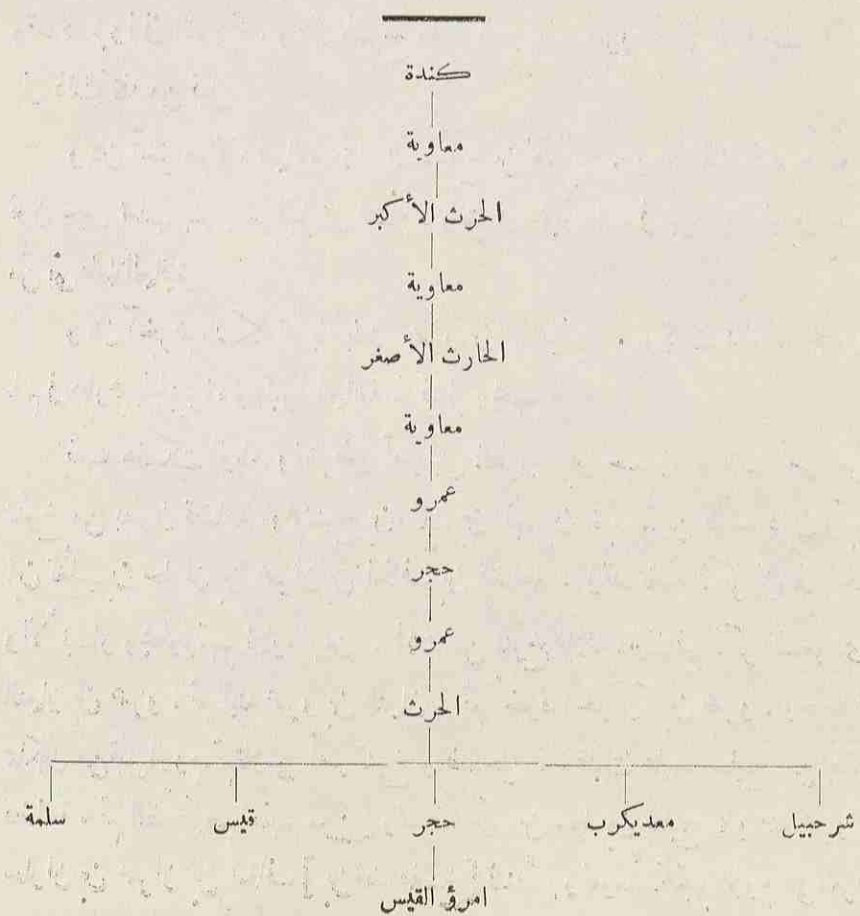 كندة
معاوية
الحرث الأكبر
معاوية
الحارث الأصغر
معاوية
عمرو
حجر
عمرو
الحرث
شرحبيل معديكرب حجر قيس سلمة
امرؤ القيس